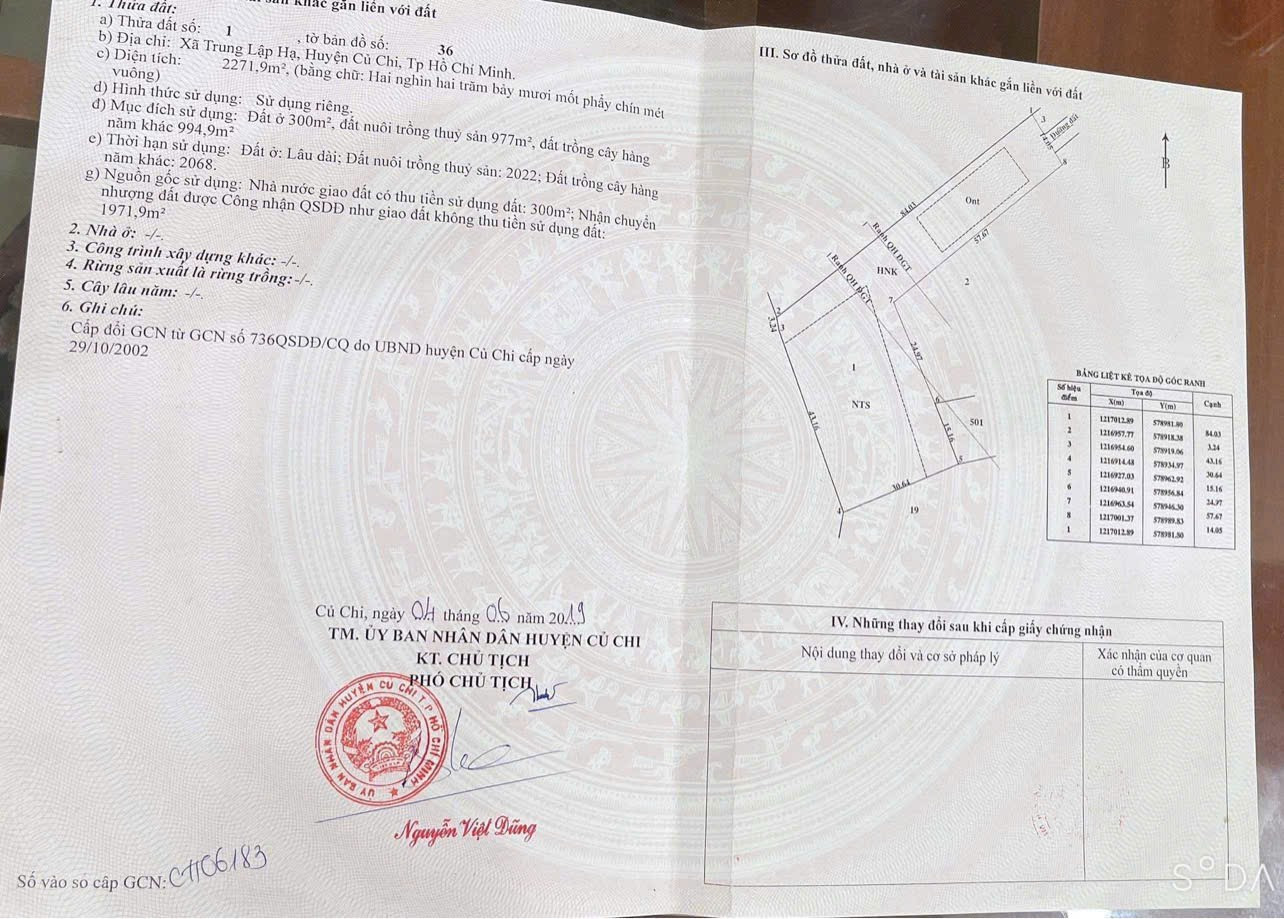 khác gắn liền với đất
1. Thửa đất:
a) Thửa đất số: 1 , tờ bản đồ số: 36
b) Địa chỉ: Xã Trung Lập Hạ, Huyện Củ Chi, Tp Hồ Chí Minh.
c) Diện tích: 2271,9m², (bằng chữ: Hai nghìn hai trăm bảy mươi mốt phẩy chín mét
vuông)
d) Hình thức sử dụng: Sử dụng riêng.
đ) Mục đích sử dụng: Đất ở 300m², đất nuôi trồng thuỷ sản 977m², đất trồng cây hàng
năm khác 994,9m²
e) Thời hạn sử dụng: Đất ở: Lâu dài; Đất nuôi trồng thuỷ sản: 2022; Đất trồng cây hàng
năm khác: 2068.
g) Nguồn gốc sử dụng: Nhà nước giao đất có thu tiền sử dụng đất: 300m²; Nhận chuyển
nhượng đất được Công nhận QSDĐ như giao đất không thu tiền sử dụng đất:
1971,9m²
2. Nhà ở: -/-.
3. Công trình xây dựng khác: -/-.
4. Rừng sản xuất là rừng trồng: -/-.
5. Cây lâu năm: -/-.
6. Ghi chú:
Cấp đổi GCN từ GCN số 736QSDĐ/CQ do UBND huyện Củ Chi cấp ngày
29/10/2002
Củ Chi, ngày 04 tháng 06 năm 2019
TM. ỦY BAN NHÂN DÂN HUYỆN CỦ CHI
KT. CHỦ TỊCH
PHÓ CHỦ TỊCH
ỦY BAN NHÂN DÂN HUYỆN CỦ CHI T.P HỒ CHÍ MINH
Nguyễn Việt Dũng
Số vào sổ cấp GCN: CH06183
III. Sơ đồ thửa đất, nhà ở và tài sản khác gắn liền với đất
1
3
Đường đất
14.05
8
B
84.03
Ont
57.67
Ranh QH ĐGT
HNK
Ranh QH ĐGT
2
7
2
3.24
3
24.97
1
NTS
43.16
6
501
15.16
5
30.64
4
19
BẢNG LIỆT KÊ TỌA ĐỘ GÓC RANH
Số hiệu điểm Tọa độ Cạnh
X(m) Y(m)
1 1217012.89 578981.80
84.03
2 1216957.77 578918.38
3.24
3 1216954.60 578919.06
43.16
4 1216914.48 578934.97
30.64
5 1216927.03 578962.92
15.16
6 1216940.91 578956.84
24.97
7 1216963.54 578946.30
57.67
8 1217001.37 578989.83
14.05
1 1217012.89 578981.80
IV. Những thay đổi sau khi cấp giấy chứng nhận
Nội dung thay đổi và cơ sở pháp lý
Xác nhận của cơ quan
có thẩm quyền
SODA